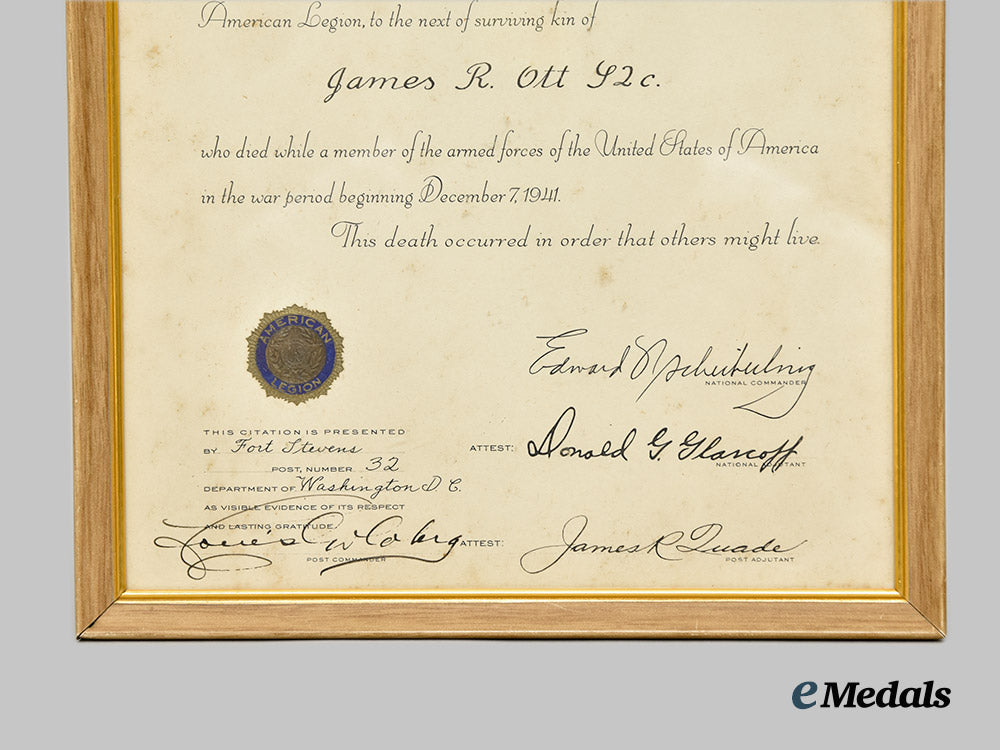 American Legion, to the next of surviving kin of
James R. Ott S2c.
who died while a member of the armed forces of the United States of America
in the war period beginning December 7, 1941.
This death occurred in order that others might live.
AMERICAN
LEGION
Edward N Scheiberling
NATIONAL COMMANDER
THIS CITATION IS PRESENTED
BY Fort Stevens
POST, NUMBER 32
DEPARTMENT OF Washington D. C.
AS VISIBLE EVIDENCE OF ITS RESPECT
AND LASTING GRATITUDE.
ATTEST: Donald G. Glascoff
NATIONAL ADJUTANT
Louis
POST COMMANDER
ATTEST: James R Quade
POST ADJUTANT
eMedals